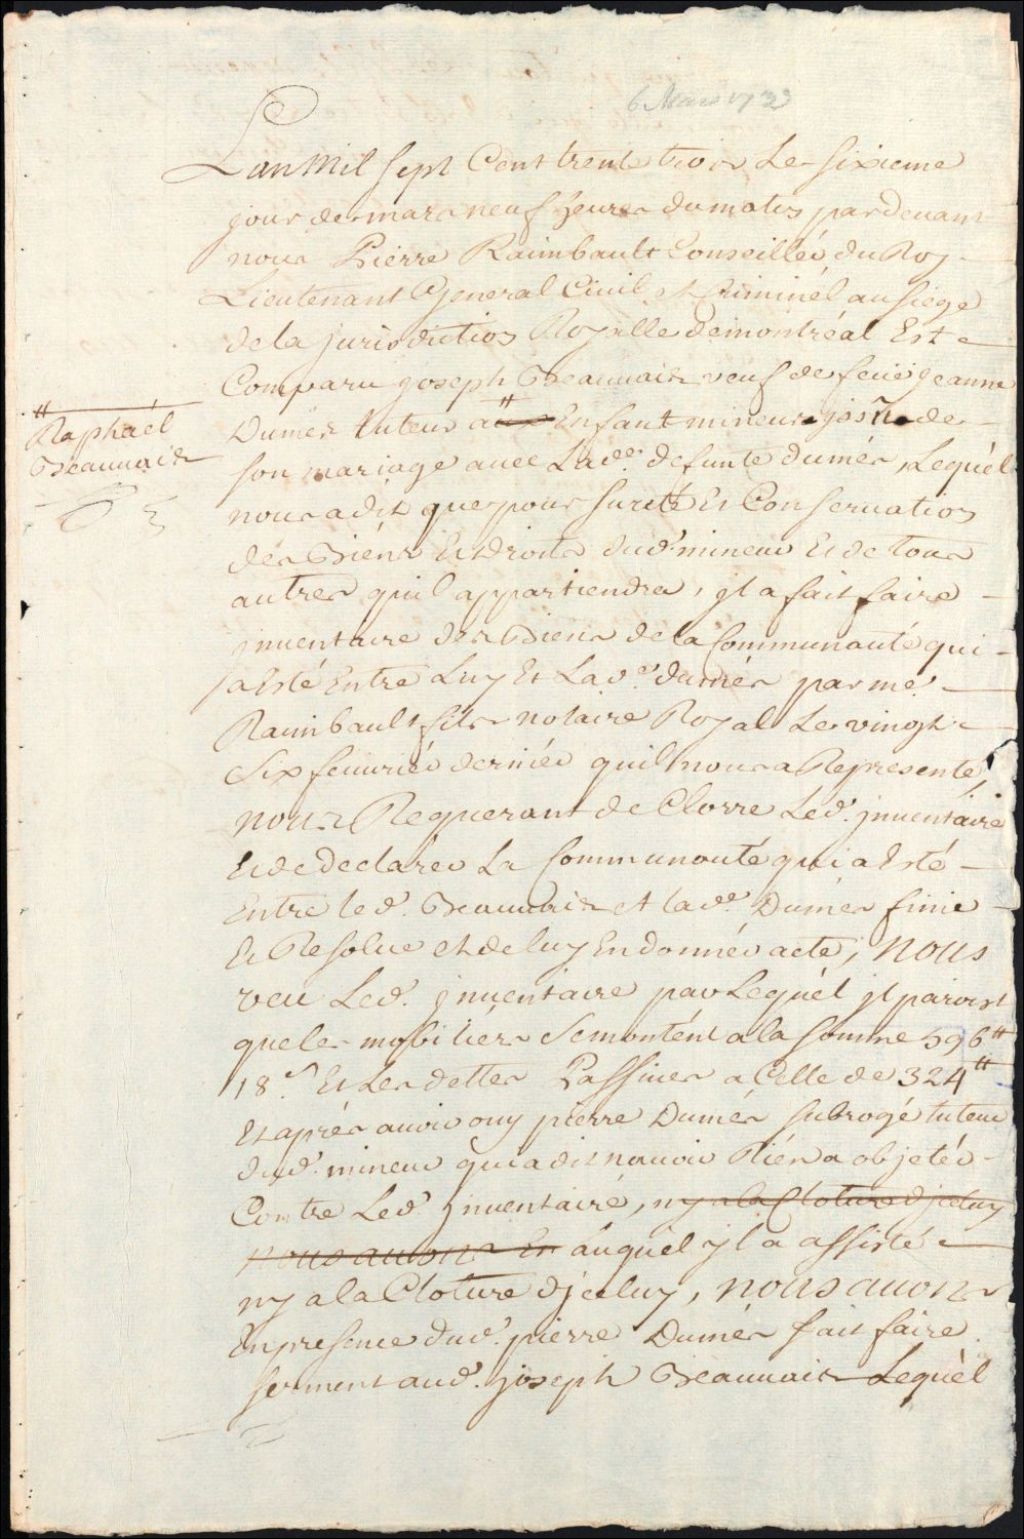 6 Mars 1733
L'an Mil Sept Cent trente trois Le Sixieme
jour de mars neuf heures du matin pardevant
nous Pierre Raimbault Conseillér du Roy
Lieutenant General Civil et Criminél au siege
de la jurisdiction Royalle de montréal Est
Comparu joseph Beauvais veuf de feüe jeanne
Dumér tuteur a # Enfant mineur de
# Raphaél
Beauvais
son mariage avec Lade. defunte dumér, Lequél
nous a dit que pour sureté Et Conservation
dés Biens Et droits dud. mineur Et de tous
autres quil appartiendra, jl a fait faire
jnventaire dés Biens de la Communauté qui
a Esté Entre Luy Et Lad.e dumér par me.
Raimbault fils notaire Royal Le vingt
Six fevriér derniér quil nous a Representé,
nous Requerant de Clorre Led. jnventaire
Et de declarér La Communauté qui a Esté
Entre led. Beauvais et lad.e Dumér finie
Et Resolue et de luy En donnér acte, nous
veu Led. jnventaire par Lequél jl paroist
que les mobiliérs se montént a la somme 596#
18 s. Et Les dettes Passives a Celle de 324#
Et aprés avoir ouy pierre Dumér subrogé tuteur
dud. mineur qui a dit n'avoir Rién a objetér
Contre Led. jnventairé, ny a la Cloture djceluy
nous avons En auquél jl a assisté
ny a la Cloture djceluy, nous avons
En presence dud. pierre Dumér fait faire
serment aud. joseph Beauvais Lequél